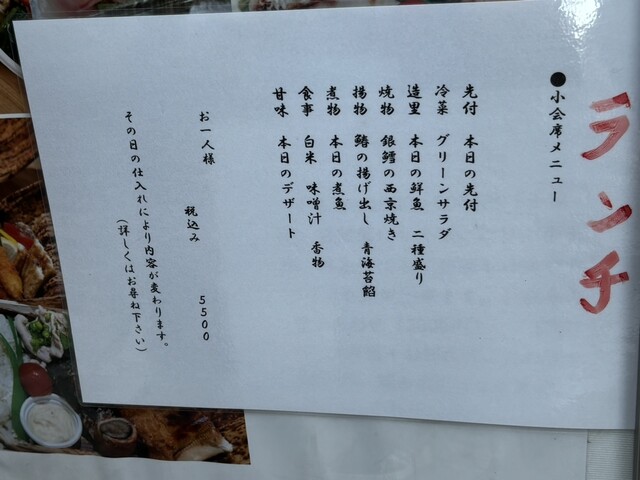 ランチ
●小会席メニュー
先付　本日の先付
冷菜　グリーンサラダ
造里　本日の鮮魚　二種盛り
焼物　銀鱈の西京焼き
揚物　鰆の揚げ出し　青海苔餡
煮物　本日の煮魚
食事　白米　味噌汁　香物
甘味　本日のデザート
お一人様　税込み　5500
その日の仕入れにより内容が変わります。
（詳しくはお尋ね下さい）